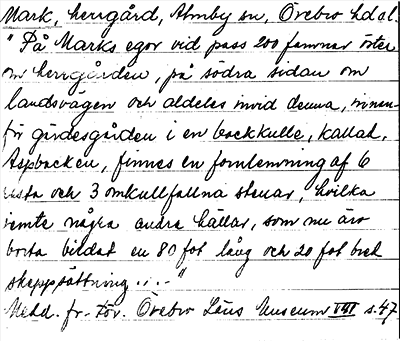 Mark, herrgård, Almby sn, Örebro hd al.
"På Marks egor vid pass 200 famnar öster
om herrgården, på södra sidan om
landsvägen och aldeles invid denna, innan-
för gärdesgården i en backkulle, kallad,
Aspbacken, finnes en fornlemning af 6
resta och 3 omkullfallna stenar, hvilka
jemte några andra hällar, som nu äro
borta bildat en 80 fot lång och 20 fot bred
skeppssättning ..–"
Medd. fr. För. Örebro Läns Museum VIII s. 47